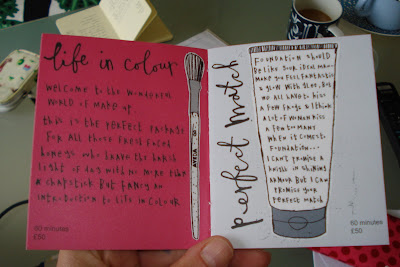 life in colour
Welcome to the wonderful
world of make up.
this is the perfect package
for all those fresh faced
honeys who brave the harsh
light of day with no more than
a chapstick but fancy an
introduction to life in colour
60 minutes
£50
perfect match
Foundation should
be like your ideal man -
make you feel fantastic
& glow with glee, but
we all have to kiss
a few frogs & I think
a lot of women kiss
a few too many
when it comes to
foundation...
I can't promise a
knight in shining
armour but I can
promise your
perfect match
60 minutes
£50